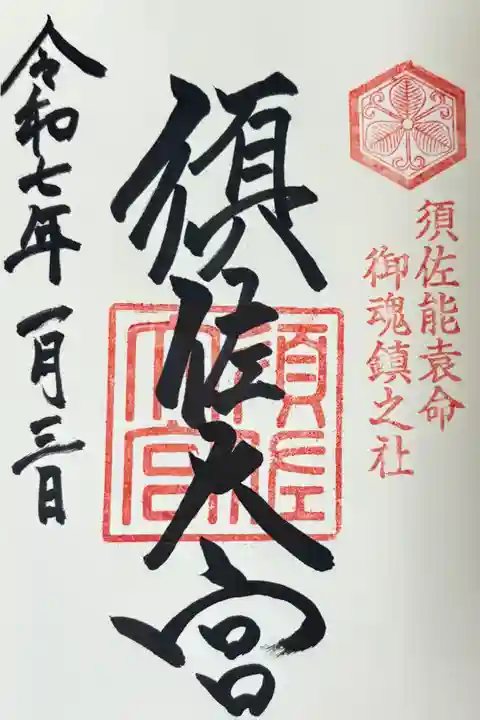 須佐能袁命
御魂鎮之社
須佐大宮
須佐大宮
令和七年一月三日